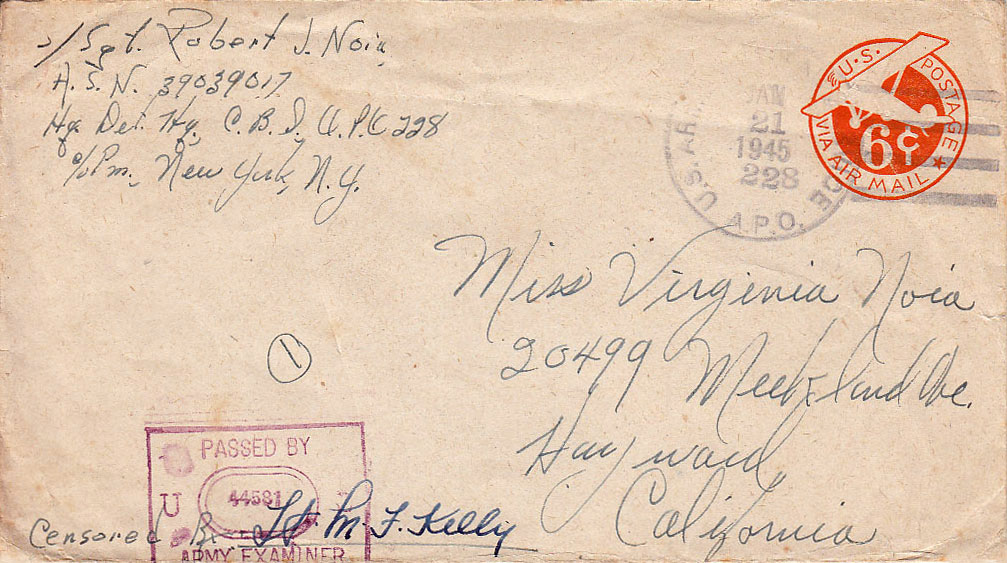 s/Sgt. Robert J. Noia,
A.S.N. 39039017
Hq. Det. Hq. C.B.I. A.P.O. 228
c/o Pm., New York, N.Y.
U.S. AR
JAN
21
1945
228
A.P.O.
U.S. POSTAGE
6¢
VIA AIR MAIL
Miss Virginia Noia
20499 Meekland Ave.
Hayward,
California
1
PASSED BY
U
44581
ARMY EXAMINER
Censored By Lt M. F. Kelly